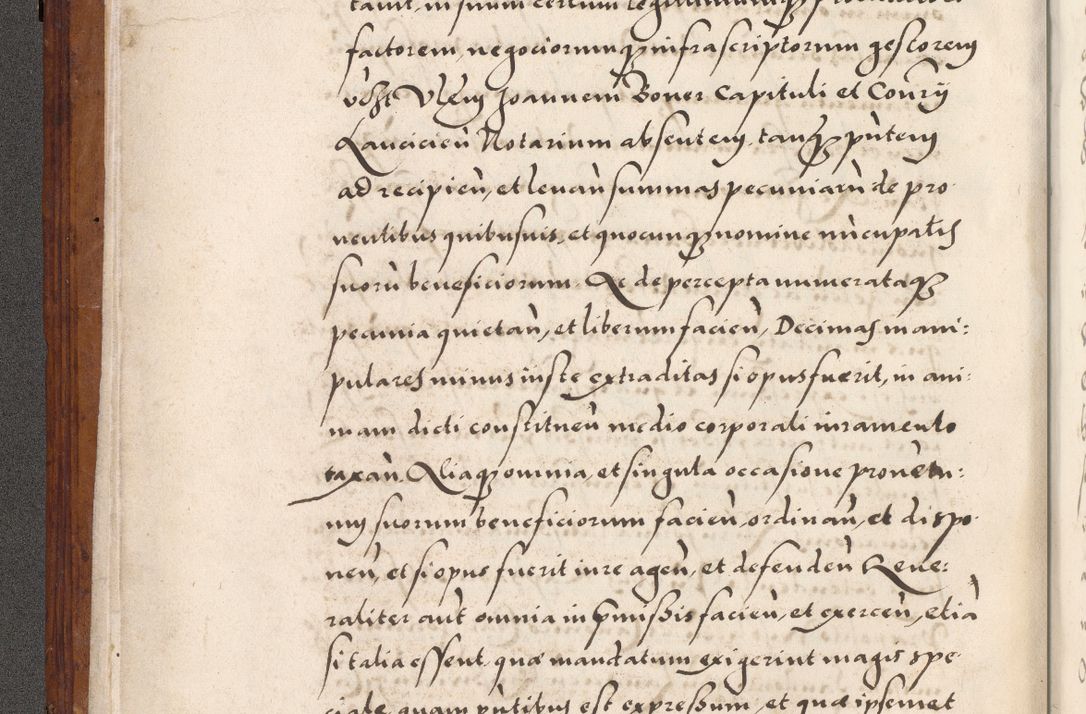 tavit, in suum certum legitimumq̃
factorem, negociorumq̃ infrascriptorum gestorem
vdzt Vlem Joannem Boner Capituli et Conrÿ
Lancicien̄ Notarium absentem tanq̃ p̄ntem
ad recipien̄, et levan̄ summas pecuniarū de pro
ventibus quibusvis, et quocunq̃ nomine nūcupatis
suorū beneficiorum. Qe de percepta numerataq̃
pecunia quietan̄, et liberum facien̄, Decimas mani:
pulares minus iuste extraditas si opus fuerit, in ani:
mam dicti constituen̄ medio corporali iuramento
taxan̄. Aliaq̃ omnia, et singula occasione proven̄tu:
um suorum beneficiorum facien̄, ordinan̄, et dispo
nen̄, et si opus fuerit iure agen̄, et defenden̄ Gene:
raliter aūt omnia in p̄missis facien̄, et exercen̄, etiā
si talia essent, quæ mandatum exigerint magis spe
ciale, quam p̄ntibus est expressum, et quæ ipsemet